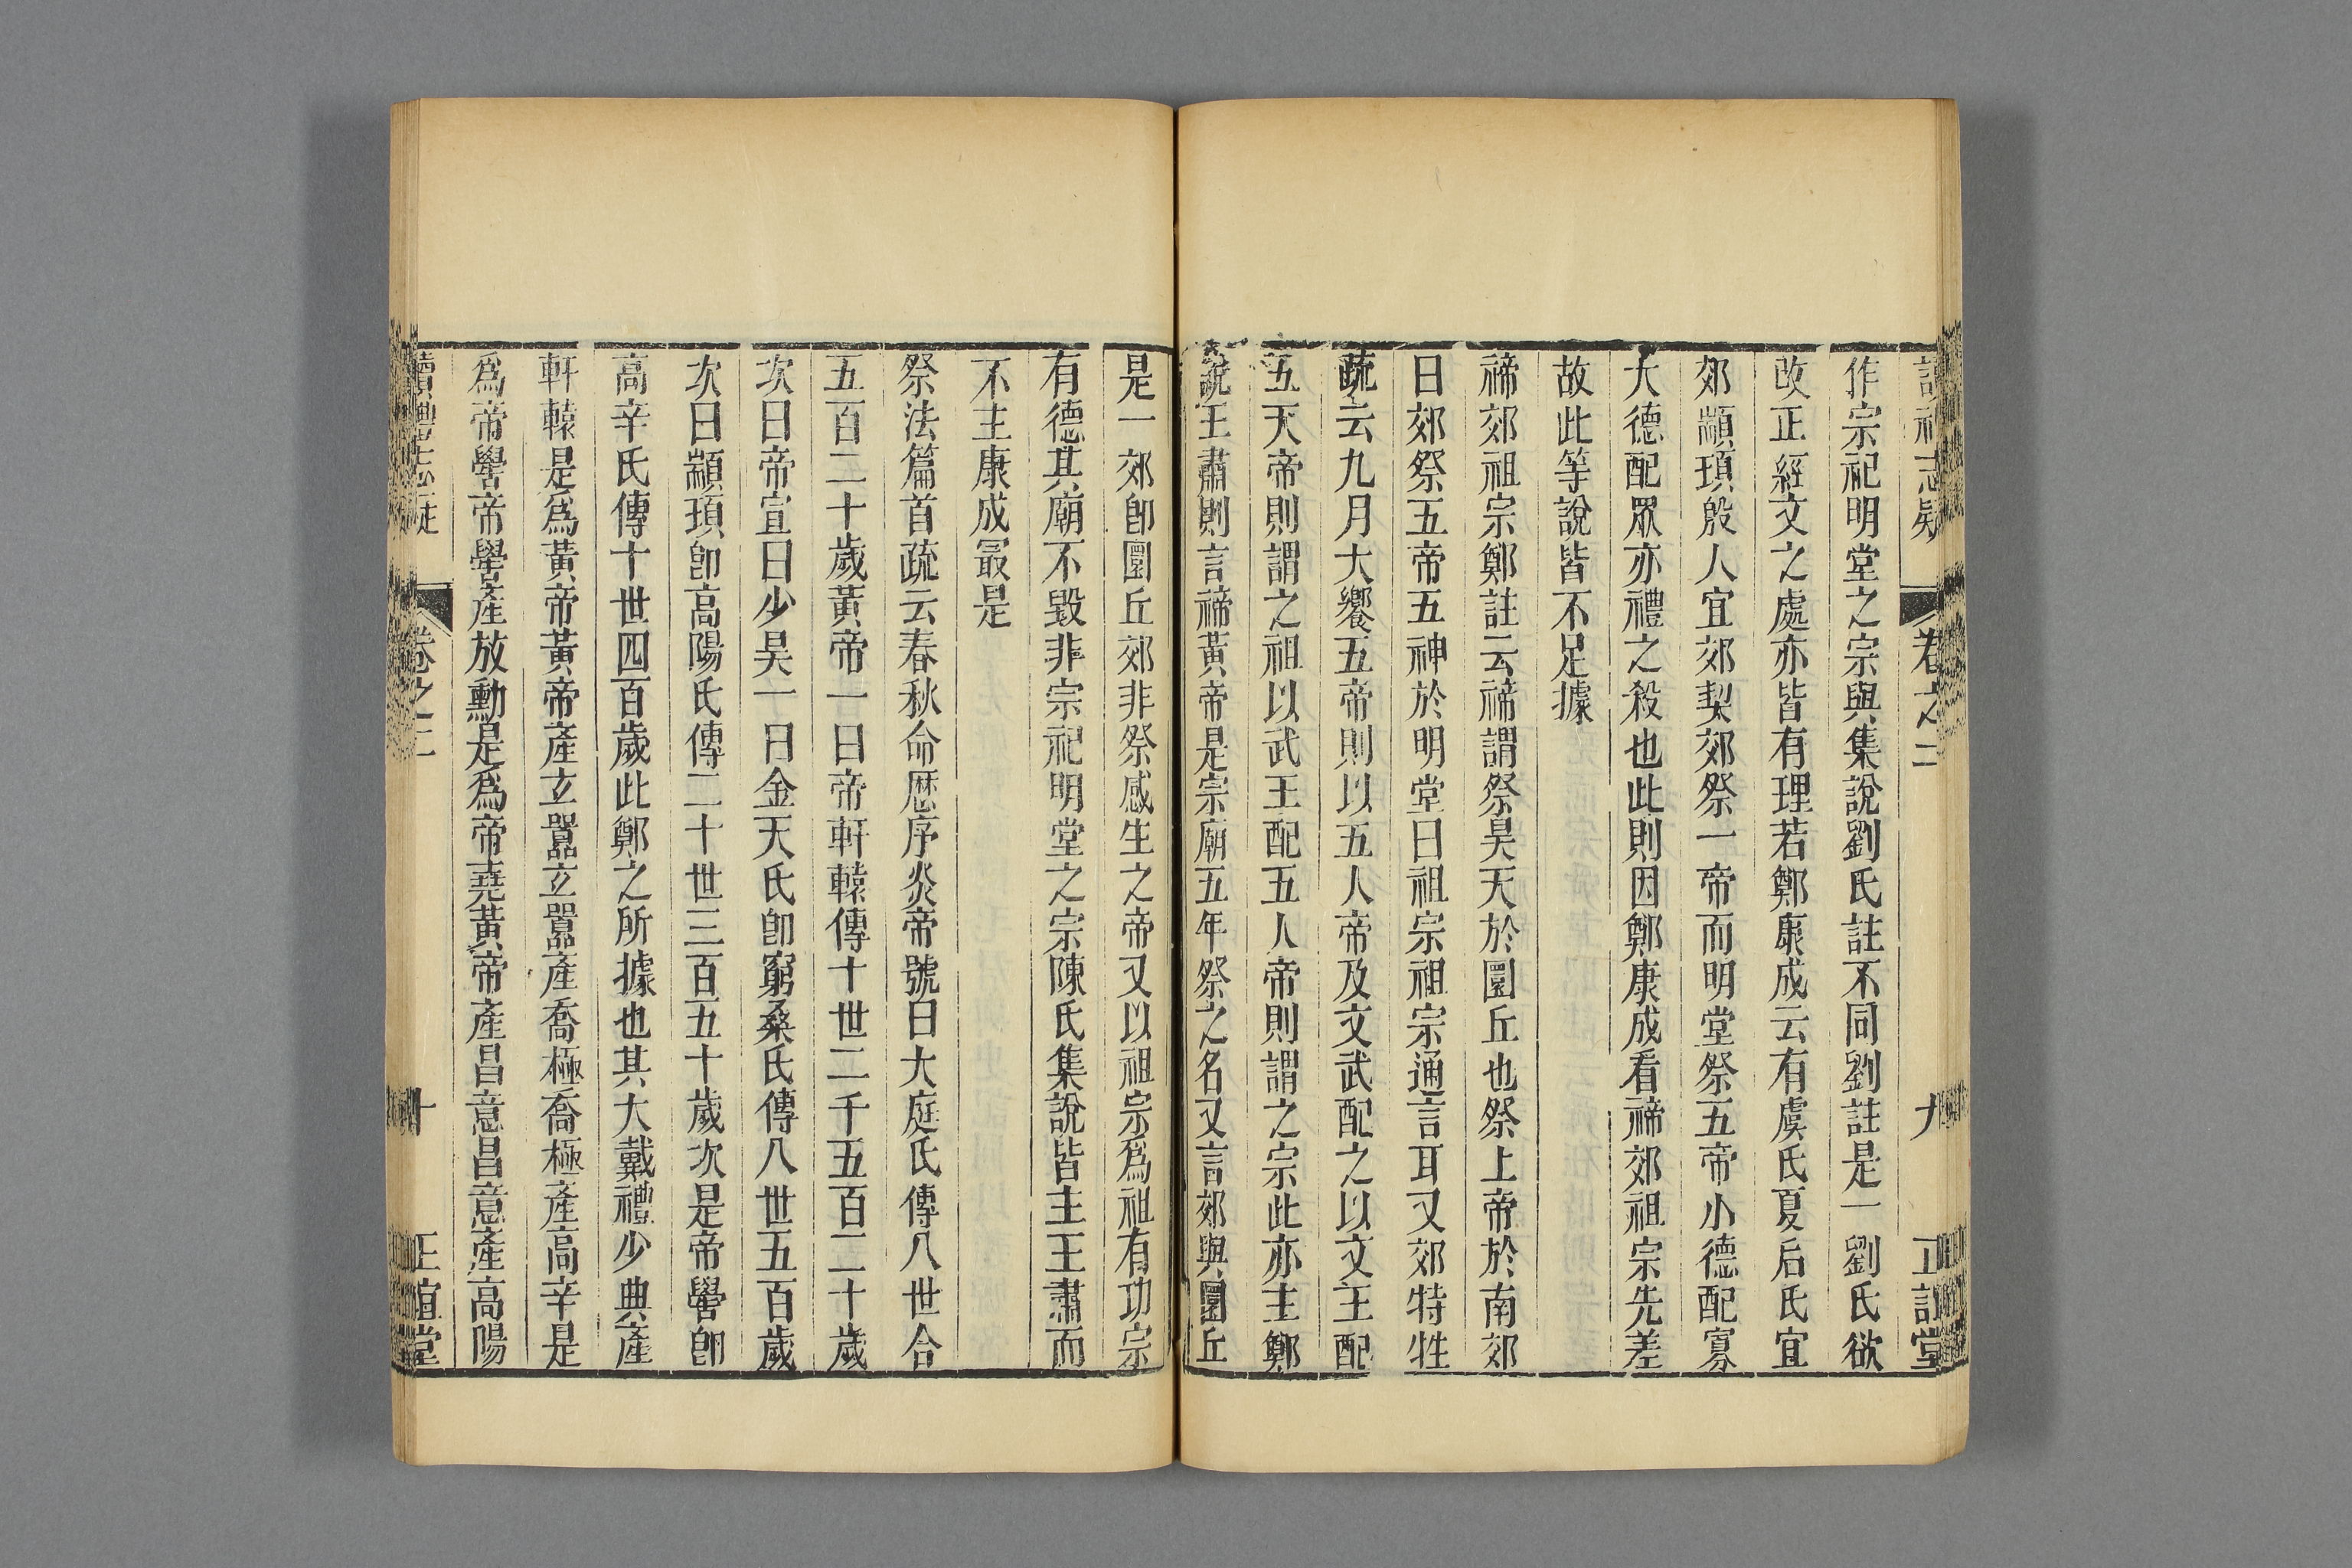 讀禮志疑 卷之二 九 正誼堂
作宗祀明堂之宗與集說劉氏註不同劉註是一劉氏欲
改正經文之處亦皆有理若鄭康成云有虞氏夏后氏宜
郊顓頊殷人宜郊契郊祭一帝而明堂祭五帝小德配寡
大德配眾亦禮之殺也此則因鄭康成看禘郊祖宗先差
故此等說皆不足據
禘郊祖宗鄭註云禘謂祭昊天於圜丘也祭上帝於南郊
曰郊祭五帝五神於明堂曰祖宗祖宗通言耳又郊特牲
疏云九月大饗五帝則以五人帝及文武配之以文王配
五天帝則謂之祖以武王配五人帝則謂之宗此亦主鄭
說王肅則言禘黃帝是宗廟五年祭之名又言郊與圜丘
是一郊卽圜丘郊非祭感生之帝又以祖宗爲祖有功宗
有德其廟不毀非宗祀明堂之宗陳氏集說皆主王肅而
不主康成冣是
祭法篇首疏云春秋命厯序炎帝號曰大庭氏傳八世合
五百二十歲黃帝一曰帝軒轅傳十世二千五百二十歲
次曰帝宣曰少昊一曰金天氏卽窮桑氏傳八世五百歲
次曰顓頊卽高陽氏傳二十世三百五十歲次是帝嚳卽
高辛氏傳十世四百歲此鄭之所據也其大戴禮少典產
軒轅是爲黃帝黃帝產立囂立囂產喬極喬極產高辛是
爲帝嚳帝嚳產放勳是爲帝堯黃帝產昌意昌意產高陽
讀禮志疑 卷之二 十 正誼堂